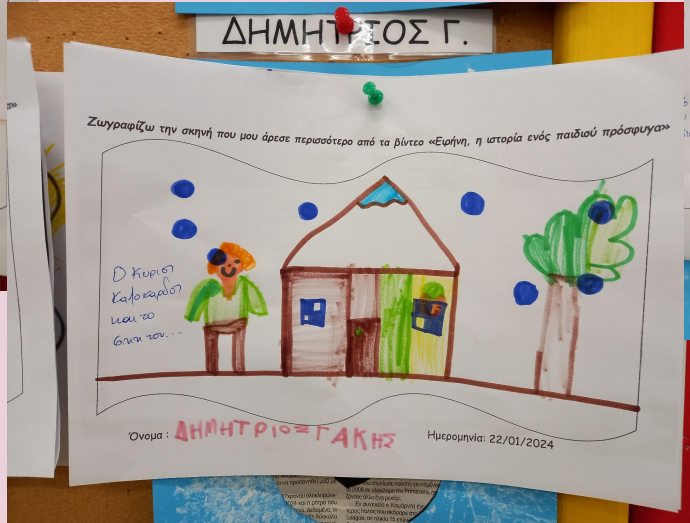 ΔΗΜΗΤΡΙΟΣ Γ.
Ζωγραφίζω την σκηνή που μου άρεσε περισσότερο από τα βίντεο «Ειρήνη, η ιστορία ενός παιδιού πρόσφυγα»
Ο Κύριος
Καλόκαρδος
και το
σπίτι του...
Όνομα : ΔΗΜΗΤΡΙΟΣ ΓΑΚΗΣ
Ημερομηνία: 22/01/2024